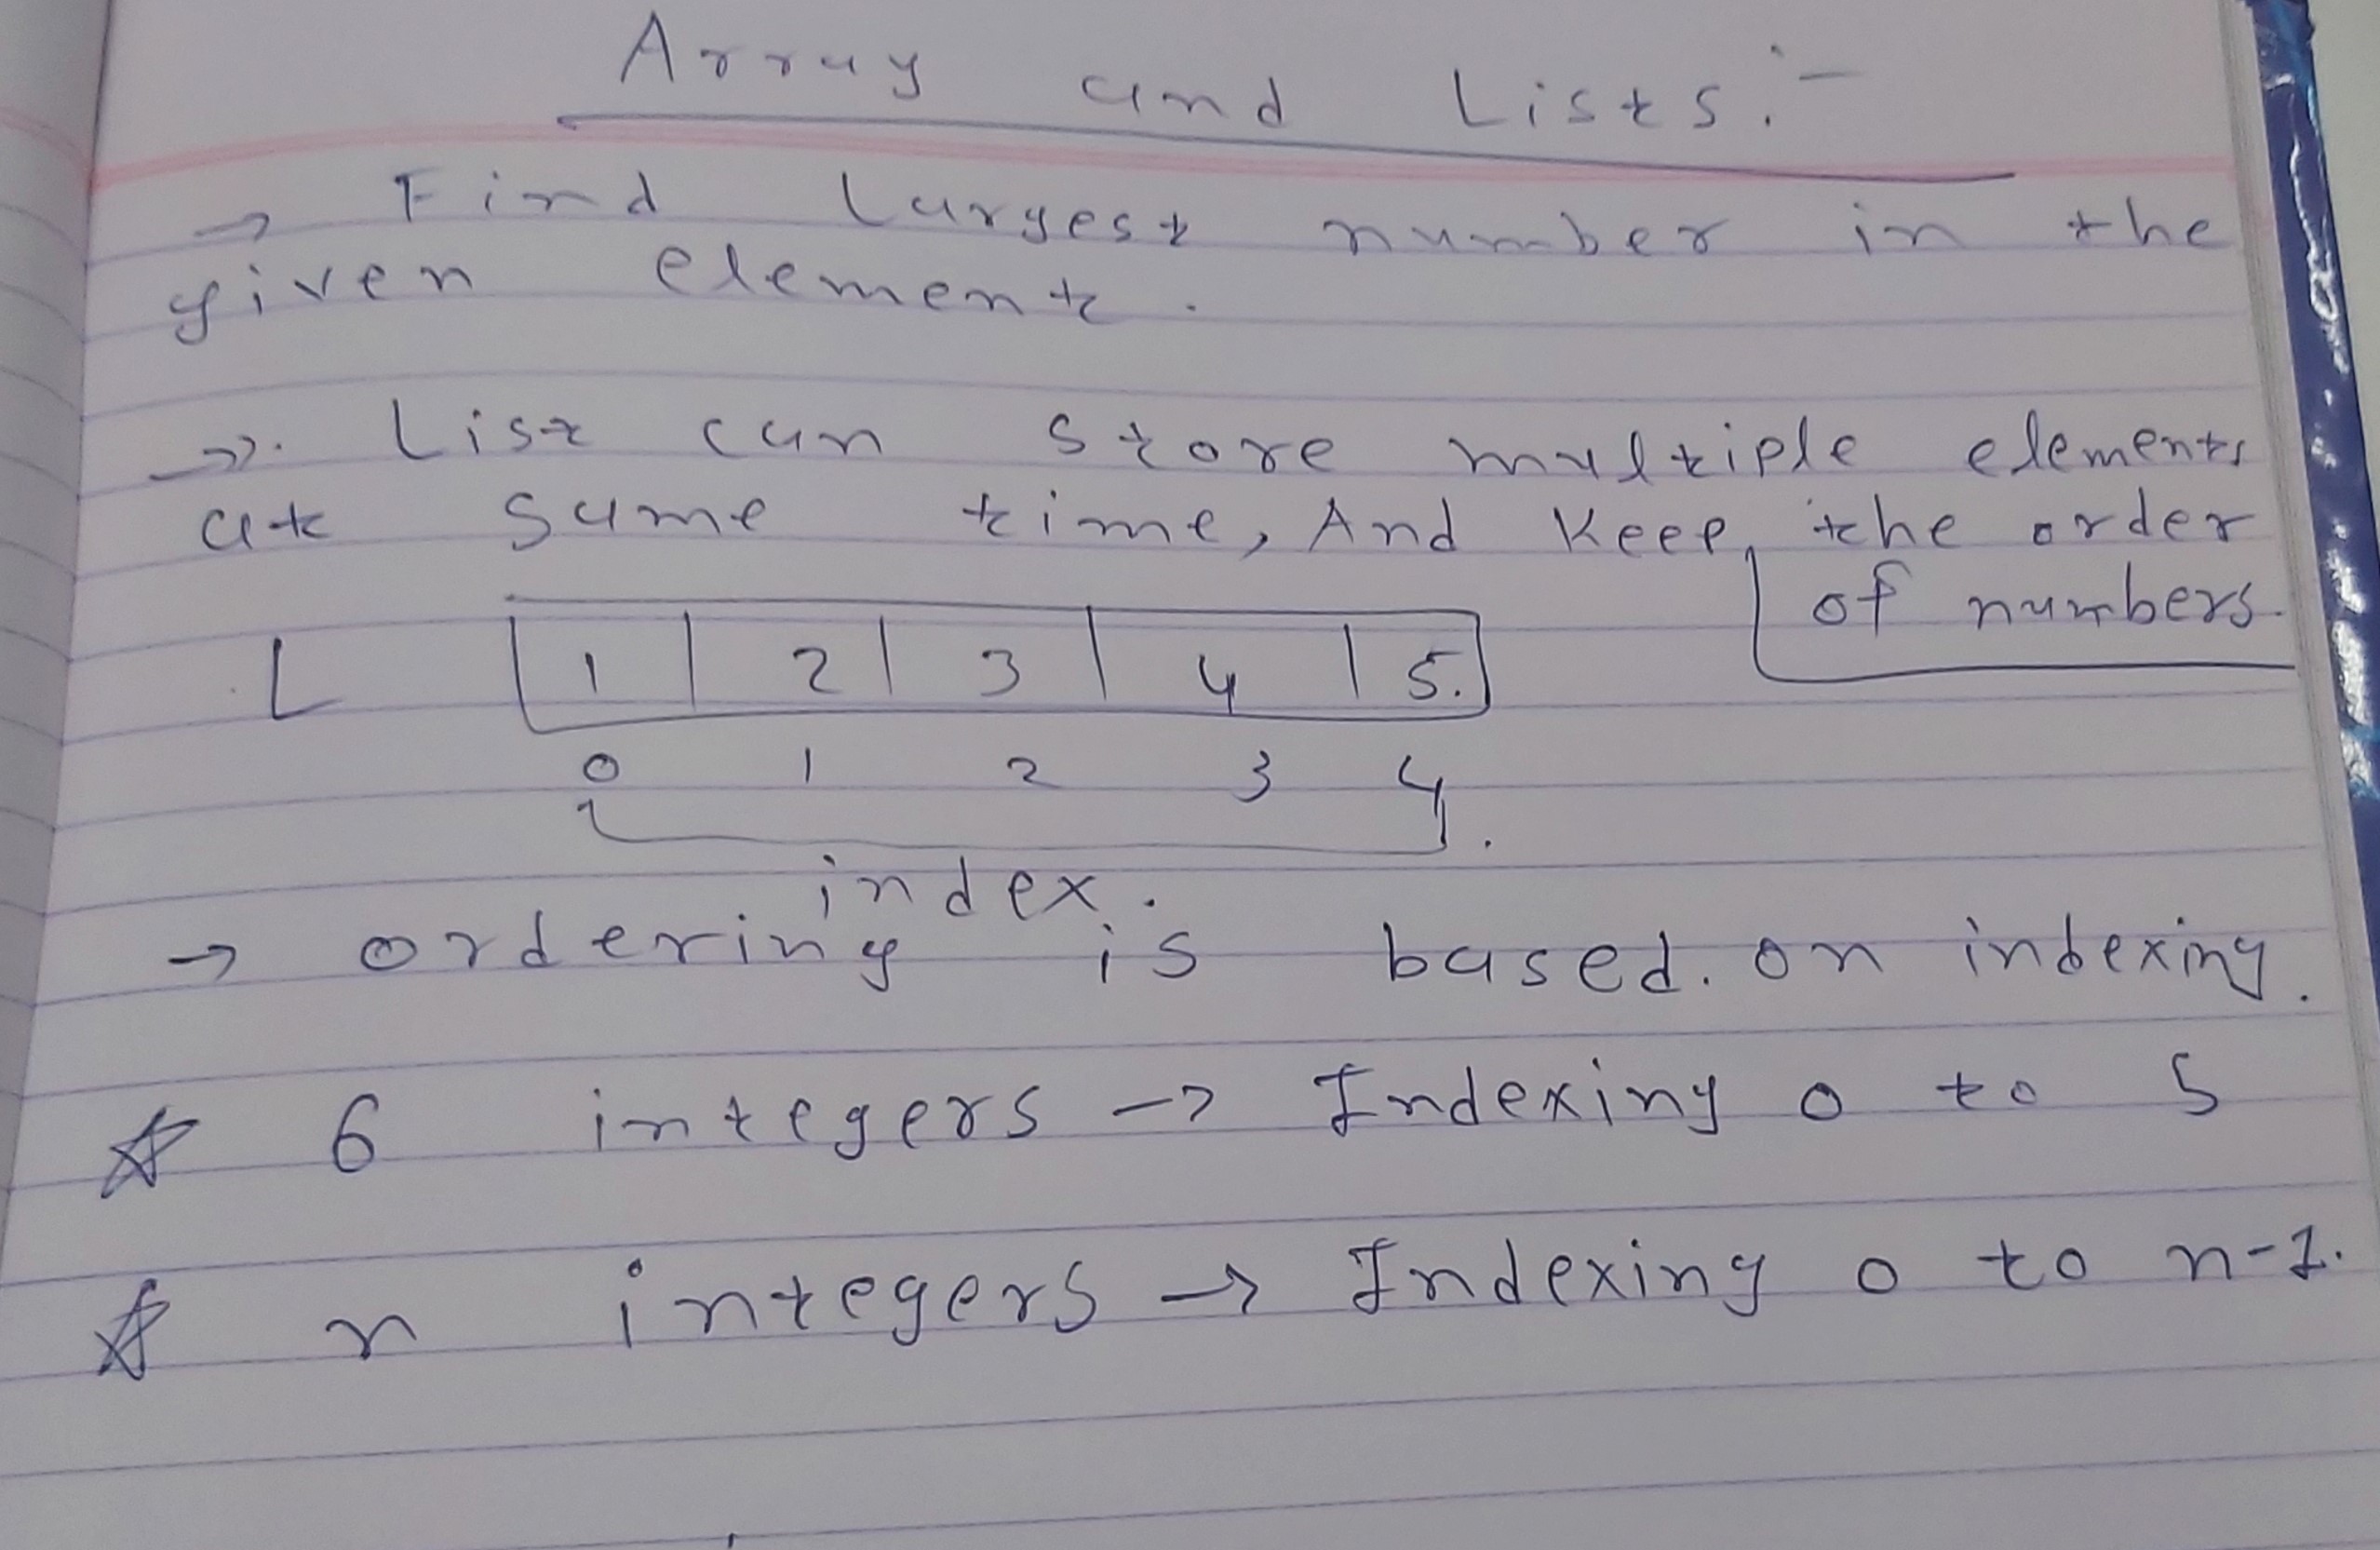 Array and Lists :-
→ Find Largest number in the
given element.
→. List can store multiple elements
at same time, And Keep the order
of numbers.
L 1 2 3 4 5.
0 1 2 3 4.
index.
→ ordering is based. on indexing.
☆ 6 integers → Indexing 0 to 5
☆ n integers → Indexing 0 to n-1.